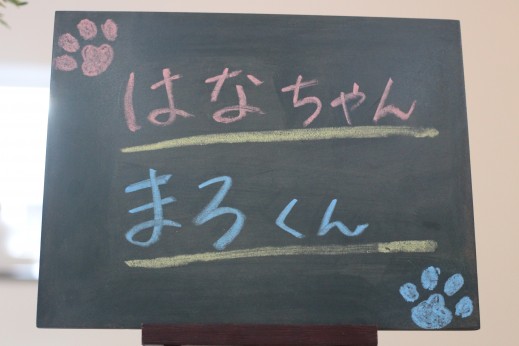 はなちゃん
まろくん